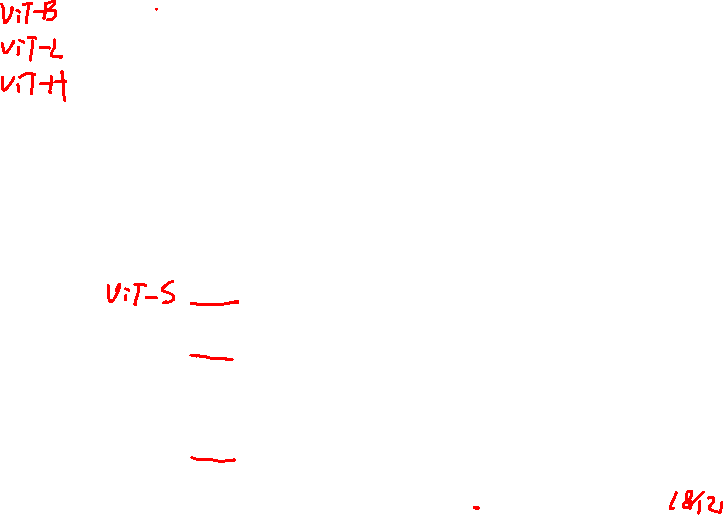 ViT-B
ViT-L
ViT-H
ViT-S